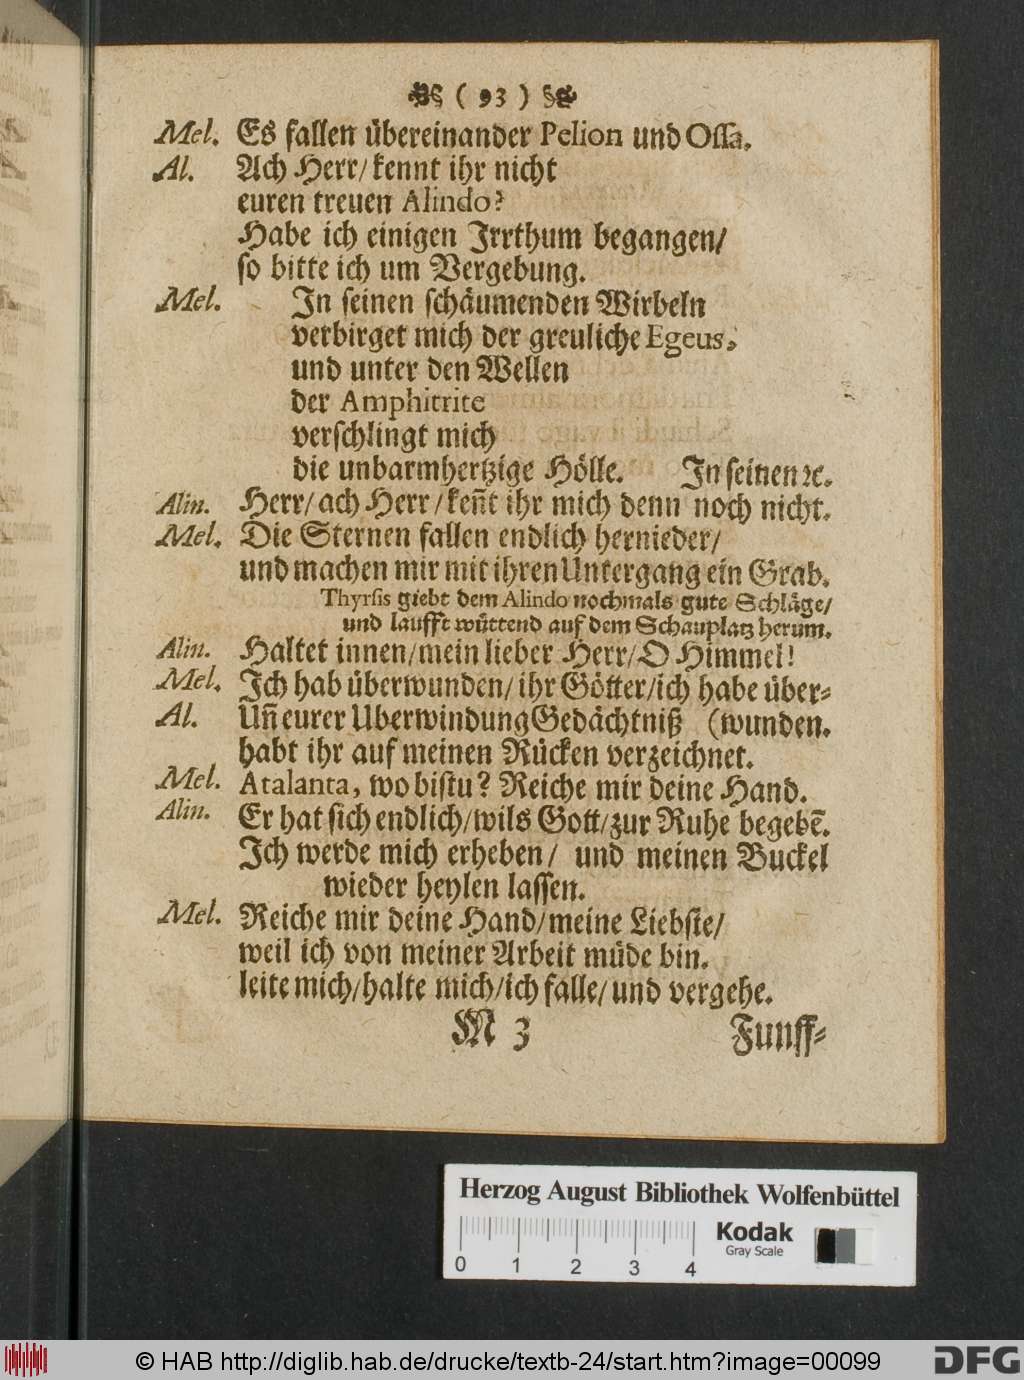 ( 93 )
Mel. Es fallen übereinander Pelion und Ossa.
Al. Ach Herr/ kennt ihr nicht
euren treuen Alindo?
Habe ich einigen Irrthum begangen/
so bitte ich um Vergebung.
Mel. In seinen schäumenden Wirbeln
verbirget mich der greuliche Egeus.
und unter den Wellen
der Amphitrite
verschlingt mich
die unbarmhertzige Hölle. In seinen ꝛc.
Alin. Herr/ ach Herr/ keñt ihr mich denn noch nicht.
Mel. Die Sternen fallen endlich hernieder/
und machen mir mit ihren Untergang ein Grab.
Thyrsis giebt dem Alindo nochmals gute Schläge/
und laufft wüttend auf dem Schauplatz herum.
Alin. Haltet innen/ mein lieber Herr/ O Himmel!
Mel. Ich hab überwunden/ ihr Götter/ ich habe über-
Al. Uñ eurer Uberwindung Gedächtniß (wunden.
habt ihr auf meinen Rücken verzeichnet.
Mel. Atalanta, wo bistu? Reiche mir deine Hand.
Alin. Er hat sich endlich/ wils Gott/ zur Ruhe begebẽ.
Ich werde mich erheben/ und meinen Buckel
wieder heylen lassen.
Mel. Reiche mir deine Hand/ meine Liebste/
weil ich von meiner Arbeit müde bin.
leite mich/ halte mich/ ich falle/ und vergehe.
M 3 Funff-
Herzog August Bibliothek Wolfenbüttel
Kodak
Gray Scale
0 1 2 3 4
© HAB http://diglib.hab.de/drucke/textb-24/start.htm?image=00099
DFG